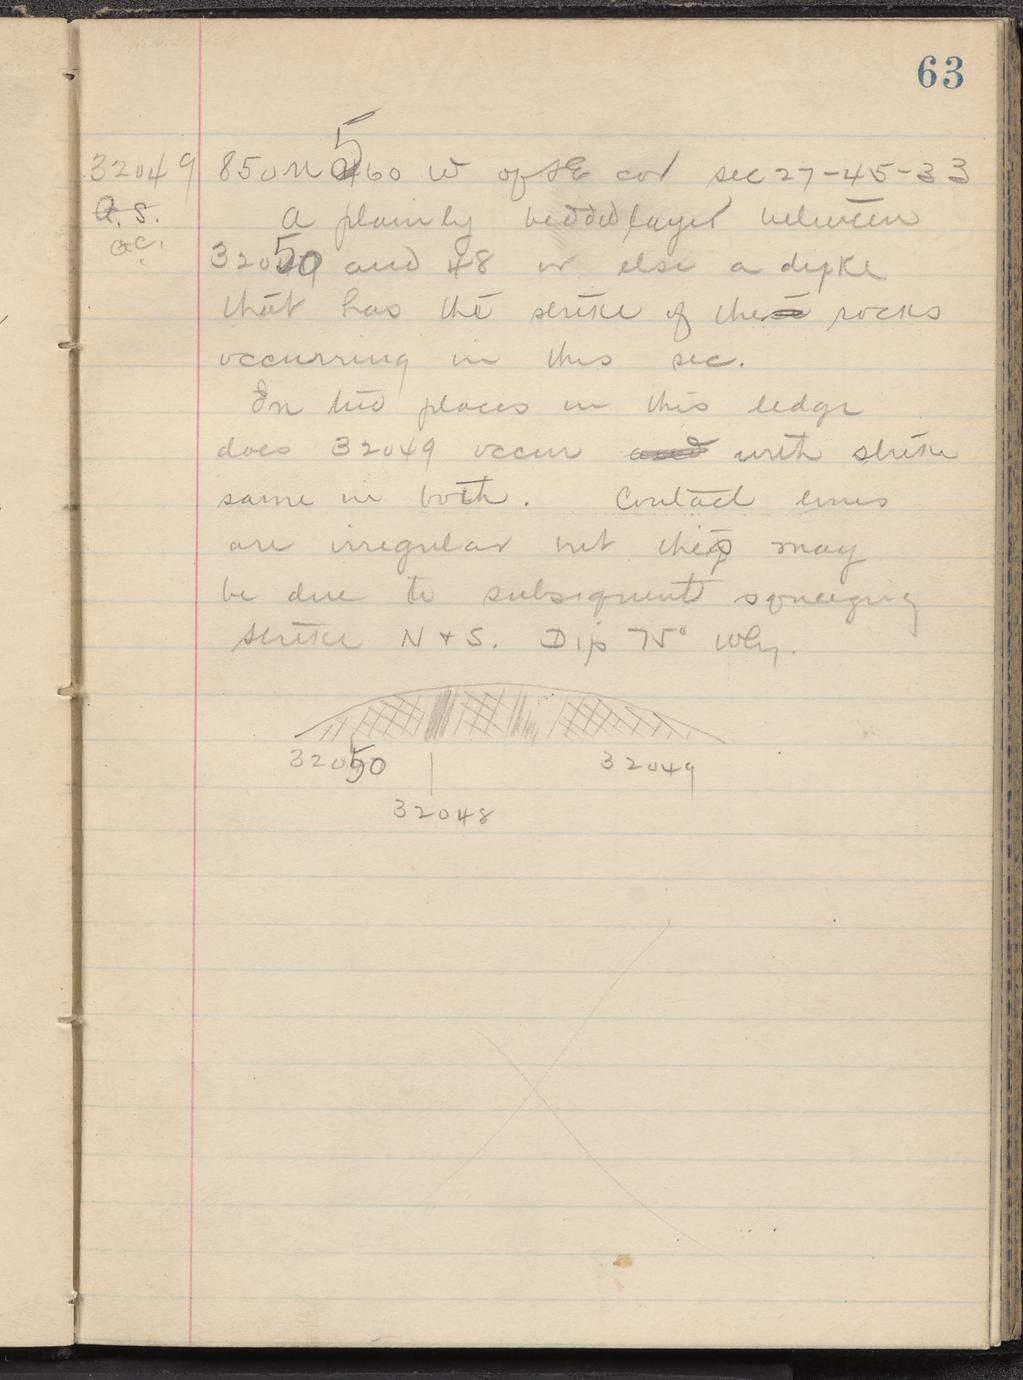 63
32049 850 N 560 W of SE cor sec 27-45-33
A. S. A plainly bedded layer between
a.c. 32050 and 48 or else a dyke
that has the strike of the rocks
occurring in this sec.
In two places in this ledge
does 32049 occur and with strike
same in both. Contact lines
are irregular but this may
be due to subsequent squeezing
strike N & S. Dip 75° Wly.
32050 32049
32048